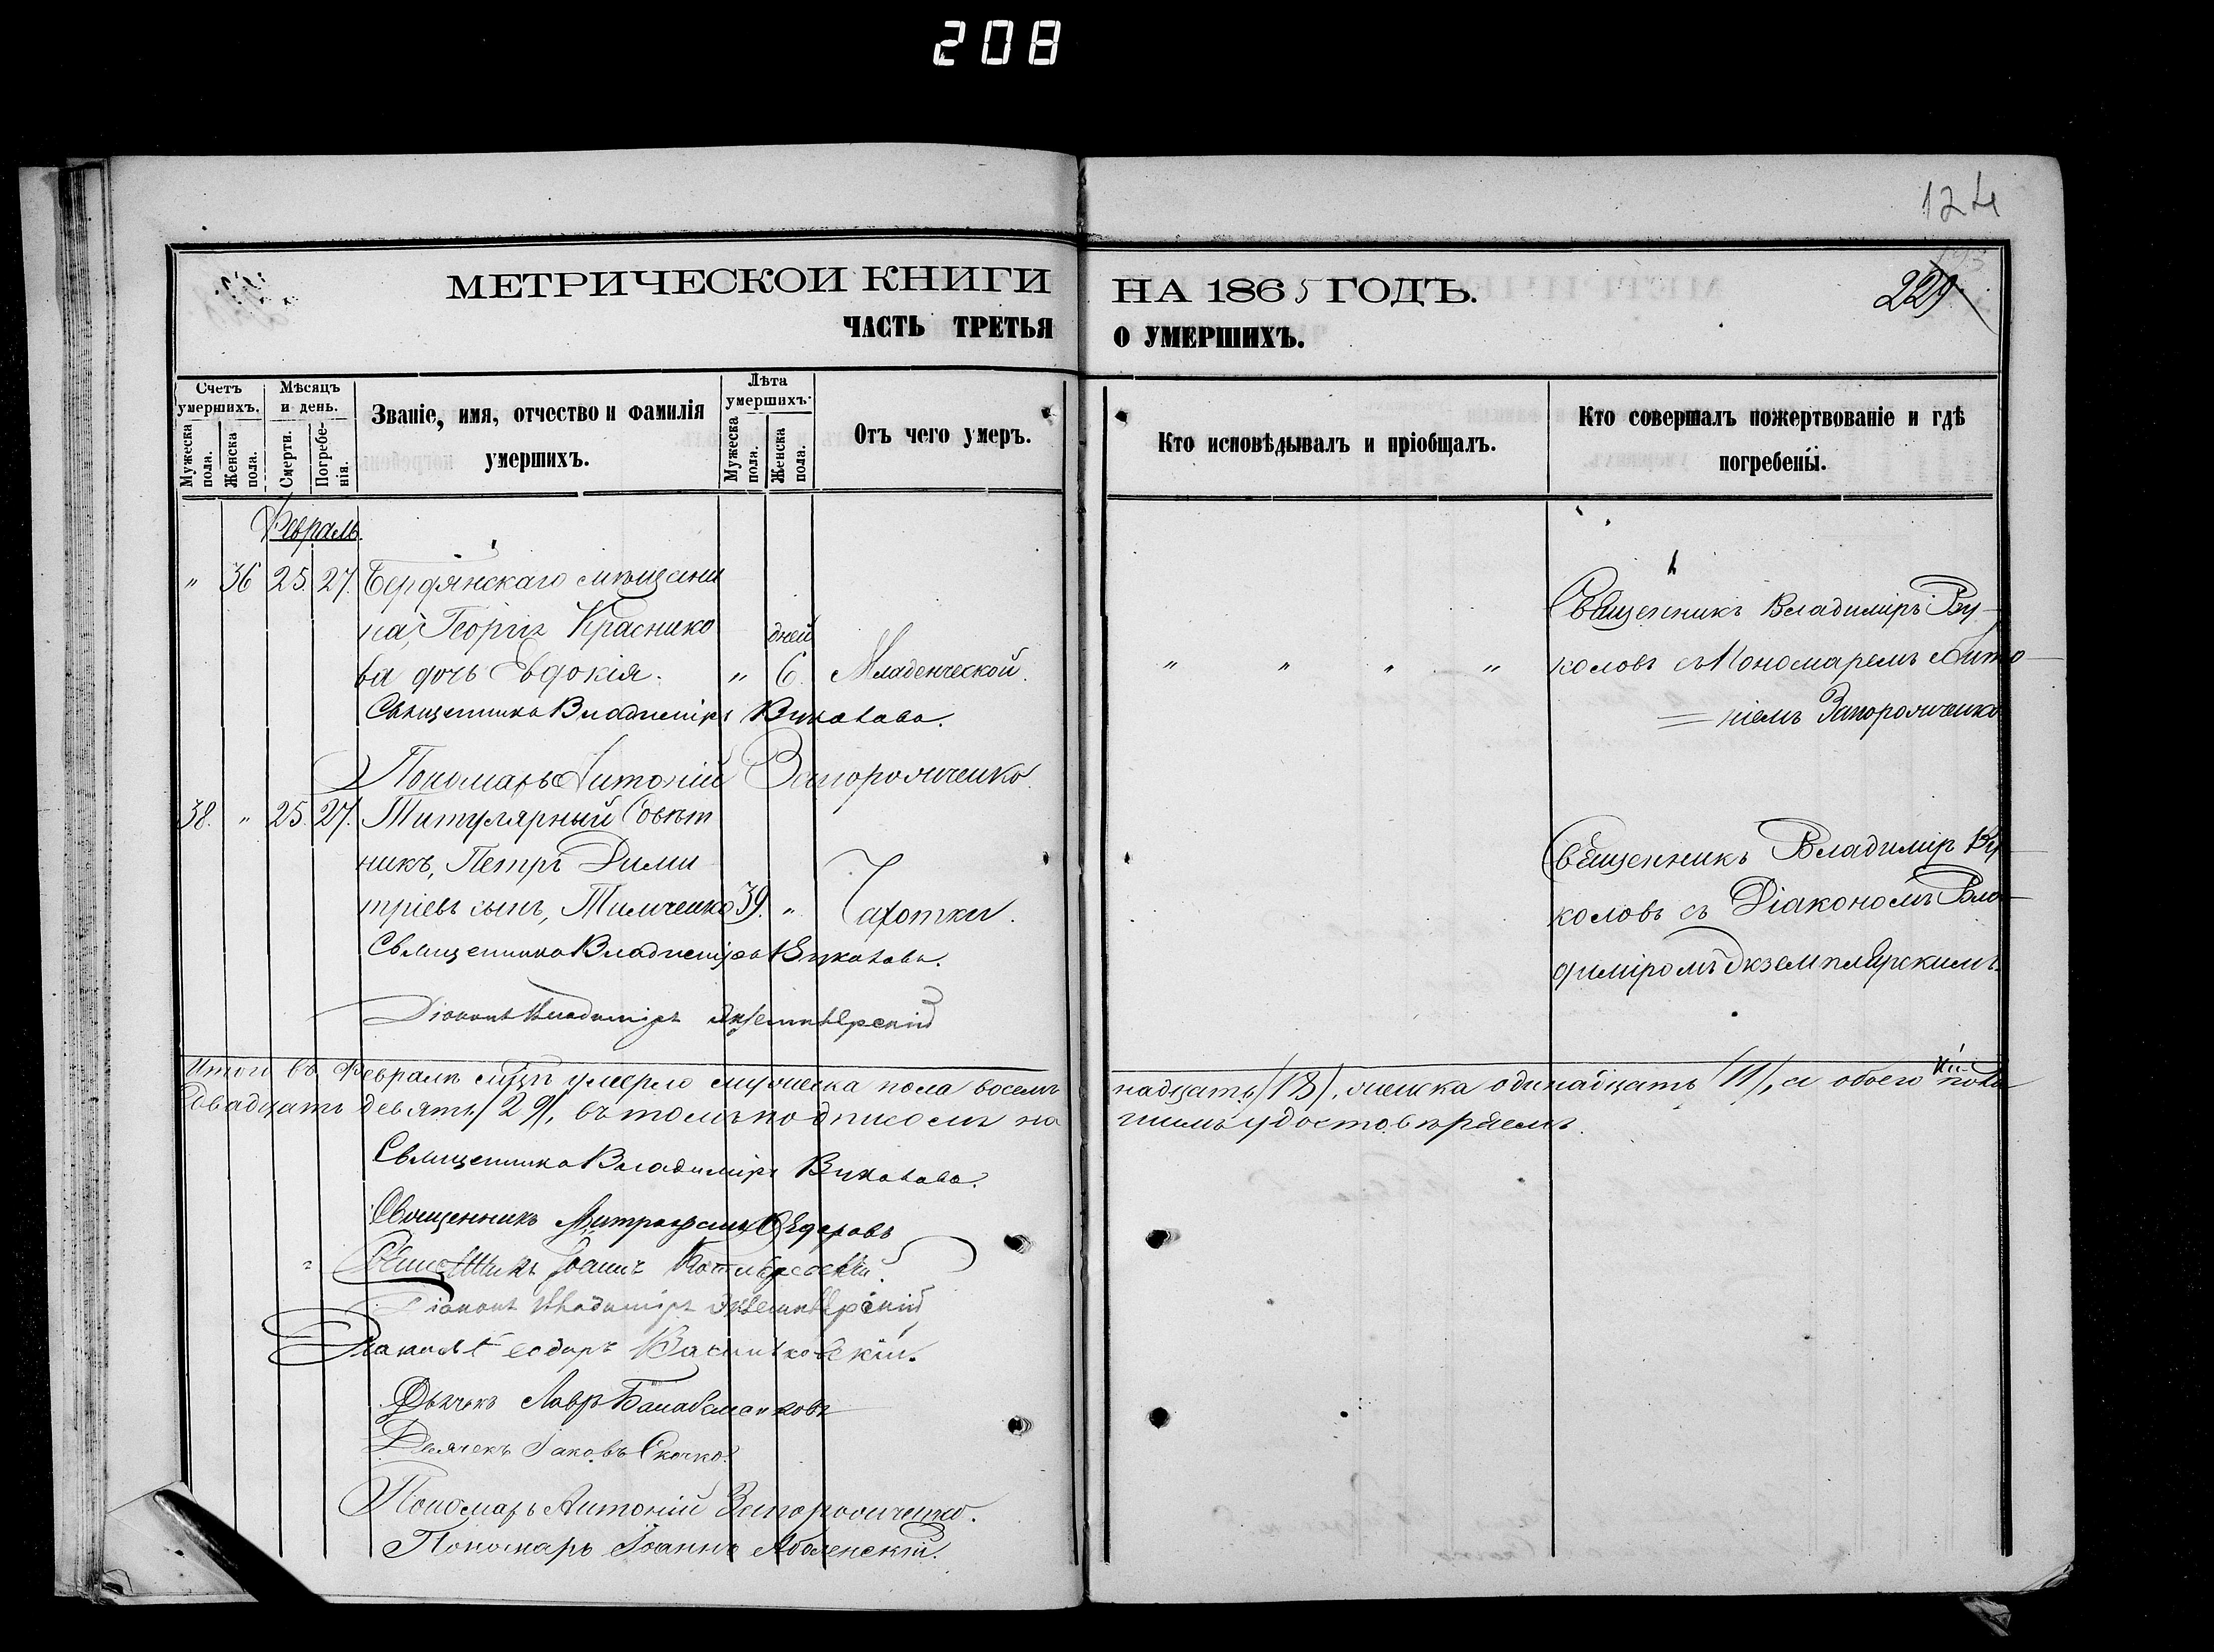 208
124
МЕТРИЧЕСКОИ КНИГИ НА 1865 ГОДЪ.
229
ЧАСТЬ ТРЕТЬЯ О УМЕРШИХЪ.
Счетъ умершихъ.
Мужеска пола.
Женска пола.
Мѣсяцъ и день.
Смерти.
Погребе-нія.
Званіе, имя, отчество и фамилія
умершихъ.
Лѣта умершихъ.
Мужеска пола.
Женска пола.
Отъ чего умеръ.
Кто исповѣдывалъ и пріобщалъ.
Кто совершалъ пожертвованіе и гдѣ
погребены.
Февраль.
" 36 25. 27. Бердянскаго мѣщани
на, Георгія Краснико
дней
ва дочь Евдокія. " 6. Младенческой.
" " " "
Священникъ Владиміръ Ву-
коловъ съ Пономаремъ Анто
ніемъ Запорожченко
Священникъ Владиміръ Вуколовъ.
Пономарь Антоній Запорожченко.
38. " 25. 27. Титулярный Совѣт
никъ, Петръ Дими
тріевъ сынъ, Тимченко 39. " Чахотки.
Священникъ Владиміръ Ву
коловъ съ Діакономъ Вла
диміромъ Экземплярскимъ.
Священникъ Владиміръ Вуколовъ.
Діаконъ Владиміръ Экземплярскій
Итого въ Февралѣ мцѣ умерло мужеска пола восемь надцать /18/, женска одинадцать /11/, а обоего пола
двадцать девять /29/, въ томъ подписомъ на шимъ удостовѣряемъ.
Священникъ Владиміръ Вуколовъ.
Священникъ Митрофанъ Ѳедоровъ
Священникъ Іоаннъ
Діаконъ Владиміръ Экземплярскій
Діаконъ Ѳеодоръ Васильковскій.
Дьячекъ Лавръ
Дьячекъ Іаковъ Скочко.
Пономарь Антоній Запорожченко.
Пономарь Іоаннъ Оболенскій.